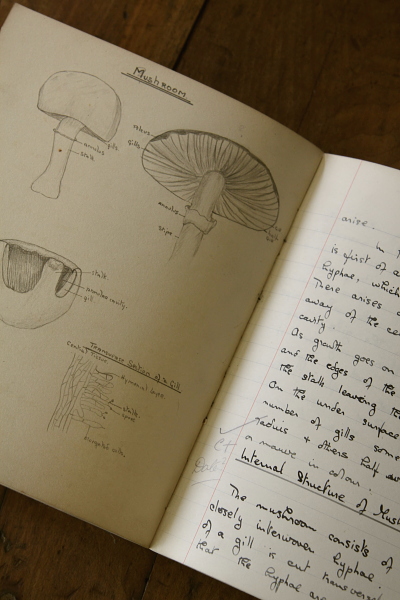 Mushroom
gills
annulus
stalk
gills
annulus
stipe
stalk
annulus cavity
gill
Transverse Section of a Gill
Hymenial layer
stalk
spore
arise.
is first of a
hyphae, which
There arises a
away of the ce
cavity.
As growth goes on
and the edges of the
the stalk leaving the
On the under surface
number of gills some
radius & others half
a mauve in colour
Internal Structure of Mush
The mushroom consists of
closely interwoven hyphae.
of a gill is cut transvers
that the hyphae are